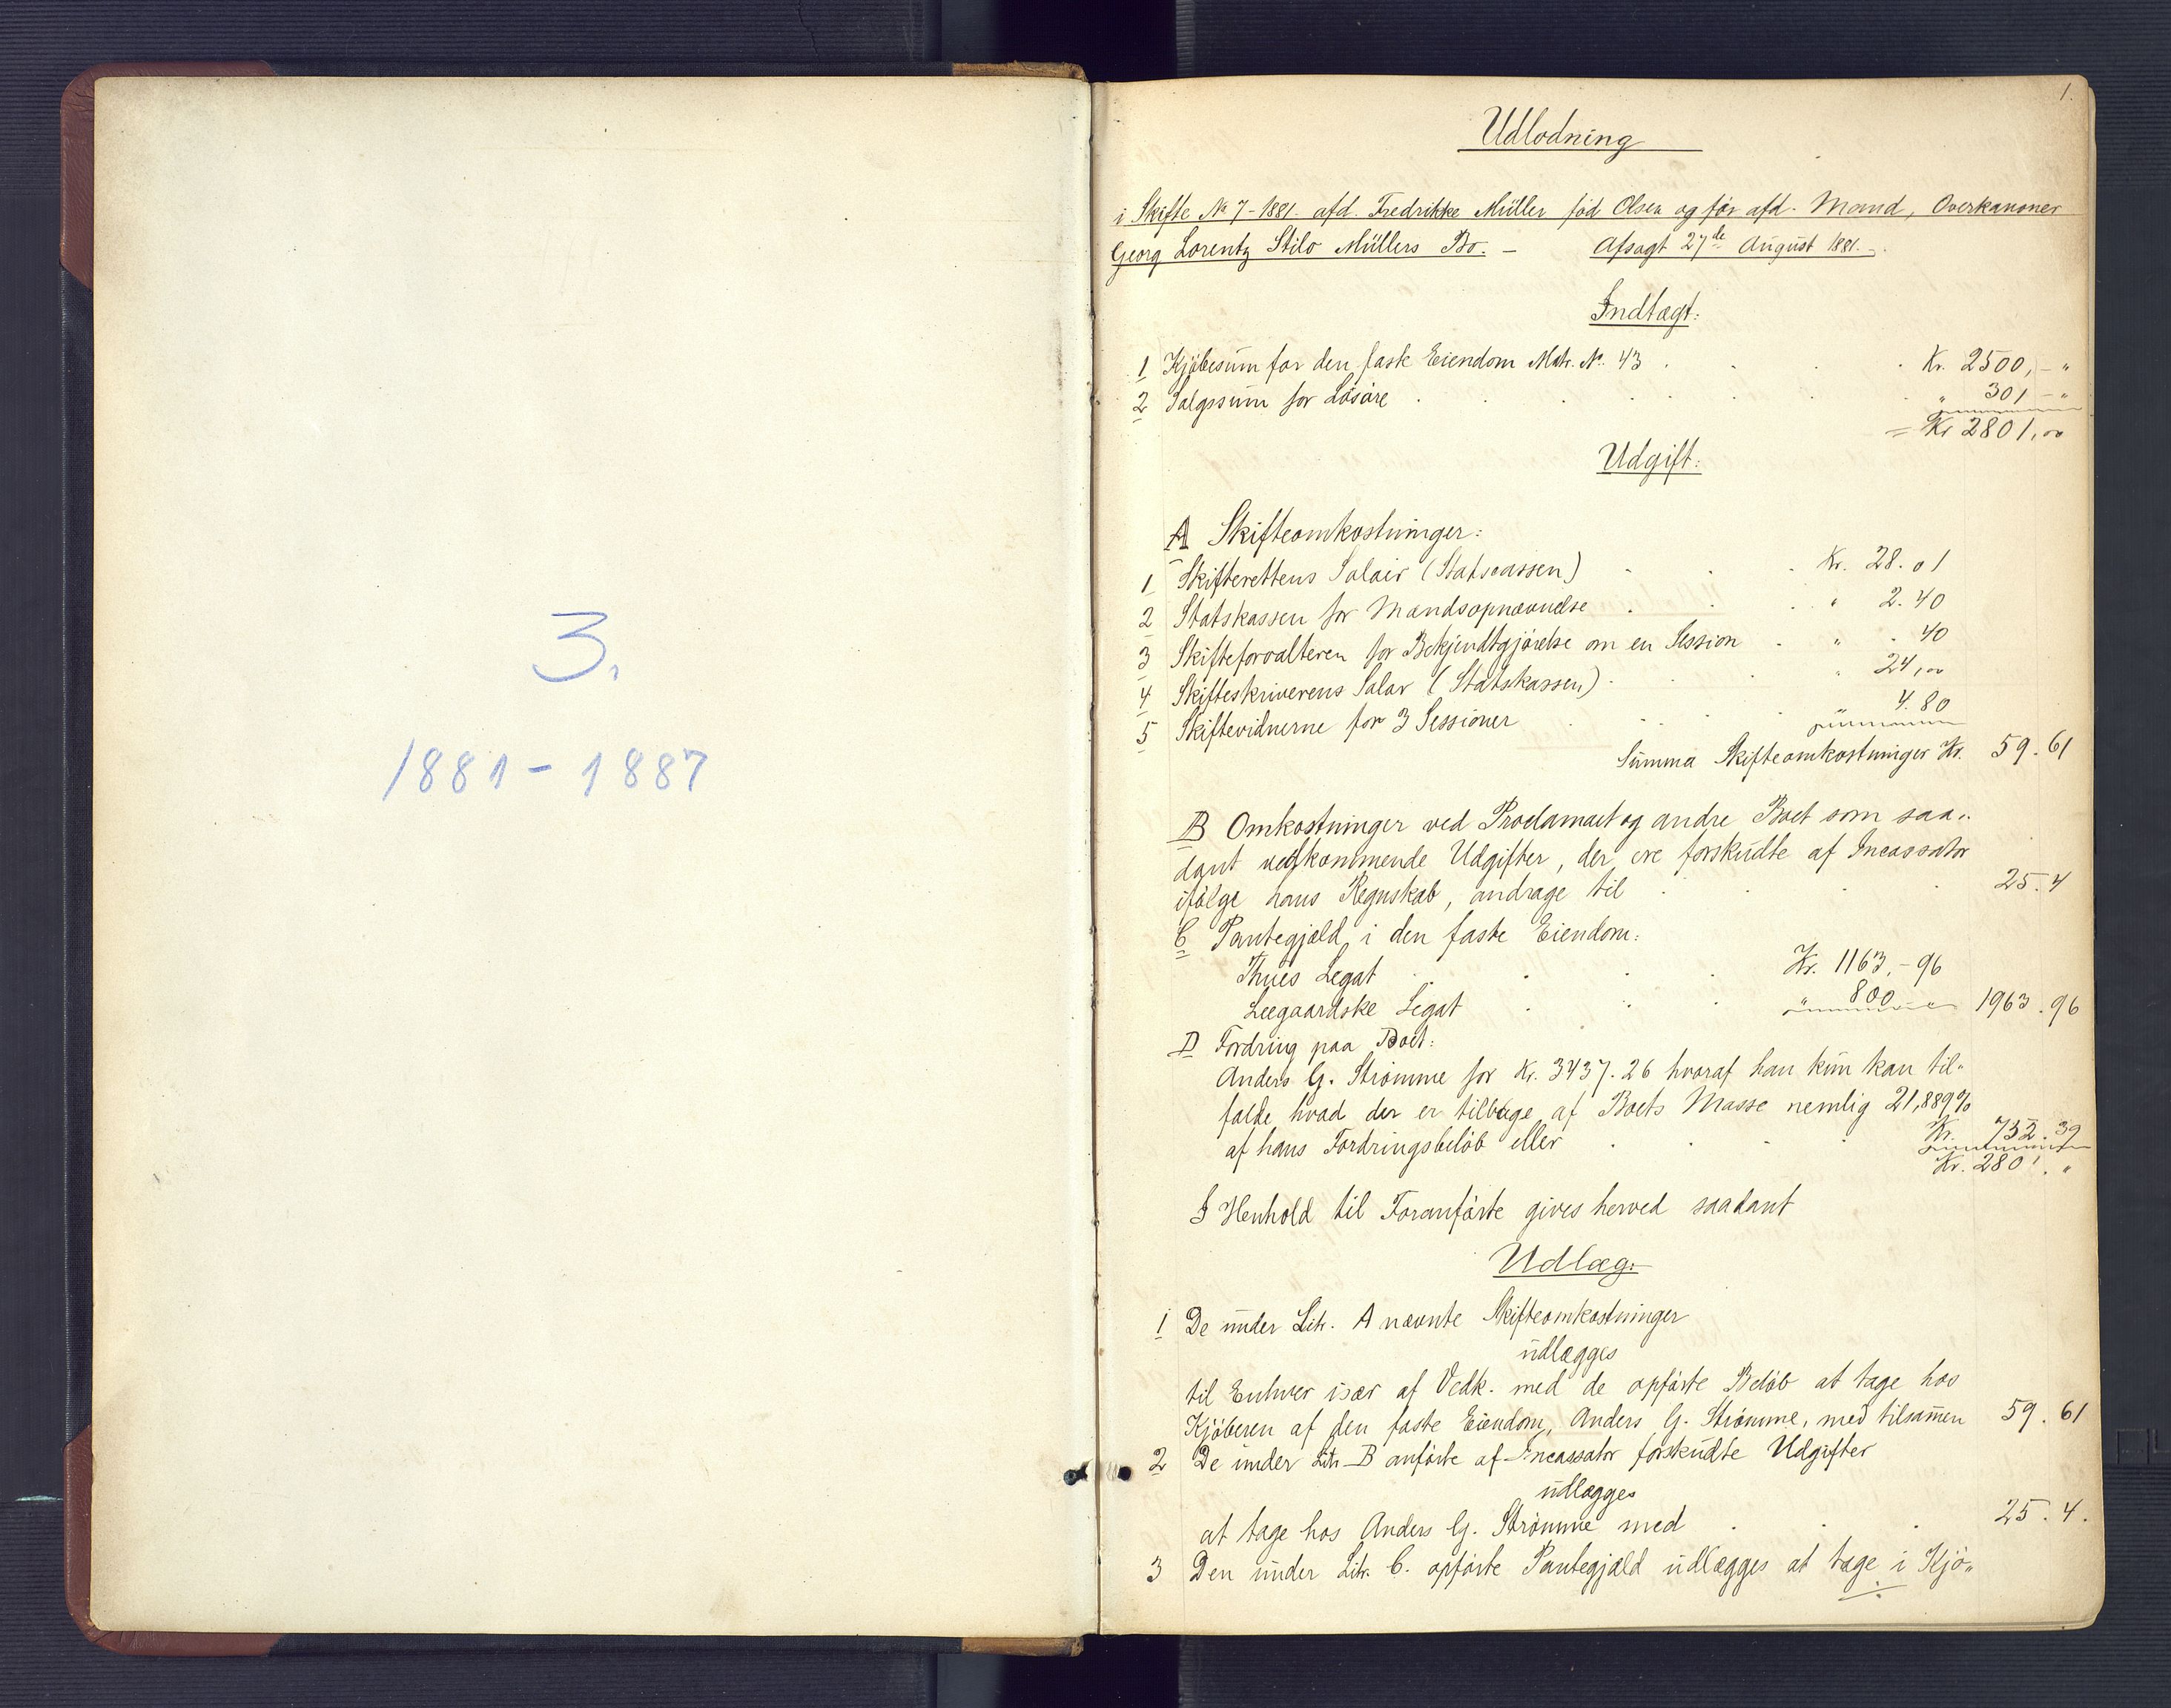 3.
1881 - 1887
1.
Udlodning
i Skifte No 7 - 1881. afd. Fredrikke Müller föd Olsen og för afd. Mand, Overkanoner
Georg Lorentz Stilo Müllers Bo. - Afsagt 27de August 1881. -
Indtægt:
1 Kjöbesum for den faste Eiendom Matr. No. 43 . . . . Kr. 2500, - "
2 Salgssum for Lösöre . . . . . . . . " 301 - "
= Kr 2801,00
Udgift:
A Skifteomkostninger:
1 Skifterettens Salair (Statscassen) . . . Kr. 28.01
2 Statskassen for Mandsopnævnelse . . . " 2.40
3 Skifteforvalteren for Bekjendtgjörelse om en Session . " . 40
4 Skifteskriverens Salar (Statskassen) . . . " 24,00
5 Skiftevidnerne for 3 Sessioner . . . . 4.80
Summa Skifteomkostninger Kr. 59.61
B Omkostninger ved Proclamaet og andre Boet som saa„
dant vedkommende Udgifter, der ere forskudte af Incassator
ifölge hans Regnskab, andrage til . . . . 25.4
C Pantegjæld i den faste Eiendom:
Thues Legat . . . . Kr. 1163, - 96
Leegaardske Legat . . . " 800 - " 1963.96
D Fordring paa Boet:
Anders G. Strömme for Kr. 3437.26 hvoraf han kun kan til-
falde hvad der er tilbage af Boets Masse nemlig 21,889%
af hans Fordringsbelöb eller . . . . Kr. 752.39
Kr. 2801. "
I Henhold til Foranförte gives herved saadant
Udlæg:
1 De under Litr. A nævnte Skifteomkostninger
udlægges
til Enhver især af Vedk. med de opförte Belöb at tage hos
Kjöberen af den faste Eiendom, Anders G. Strömme, med tilsammen 59.61
2 De under Litr B anförte af Incassator forskudte Udgifter
udlægges
at tage hos Anders G. Strömme med . . . 25.4.
3 Den under Litr. C. opförte Pantegjæld udlægges at tage i Kjö„